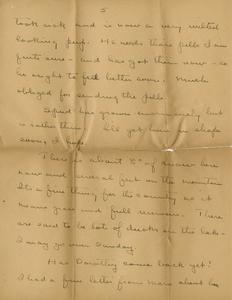 5
took sick and is now a very wilted
looking pup. He needs those pills I am
quite sure - and has got them now - so
he ought to feel better soon. Much
obliged for sending the pills.
Squid has grown enormously but
is rather thin. I'll get him in shape
soon I hope.
There is about 8" of snow here
now and several feet on the mountains
It's a fine thing for the country as it
means grass and full reservoirs. There
are said to be lots of ducks on the lake -
I may go over Sunday.
Has Dorothy come back yet?
I had a fine letter from Mars about her